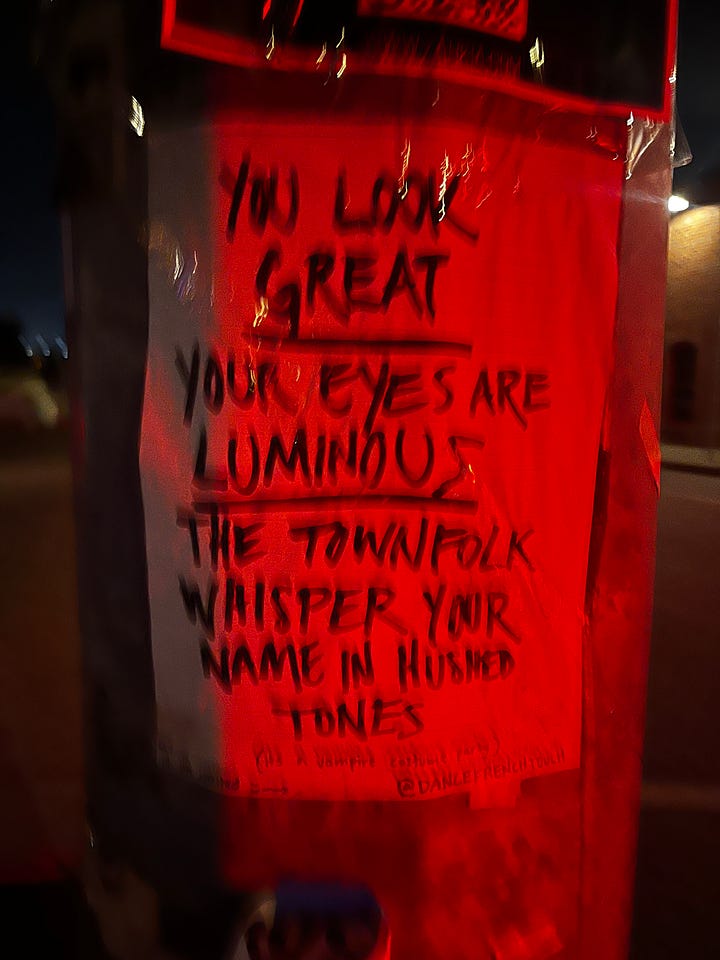 YOU LOOK
GREAT
YOUR EYES ARE
LUMINOUS
THE TOWNFOLK
WHISPER YOUR
NAME IN HUSHED
TONES
vampire costume party)
@DANLEFRENCHTOUCH